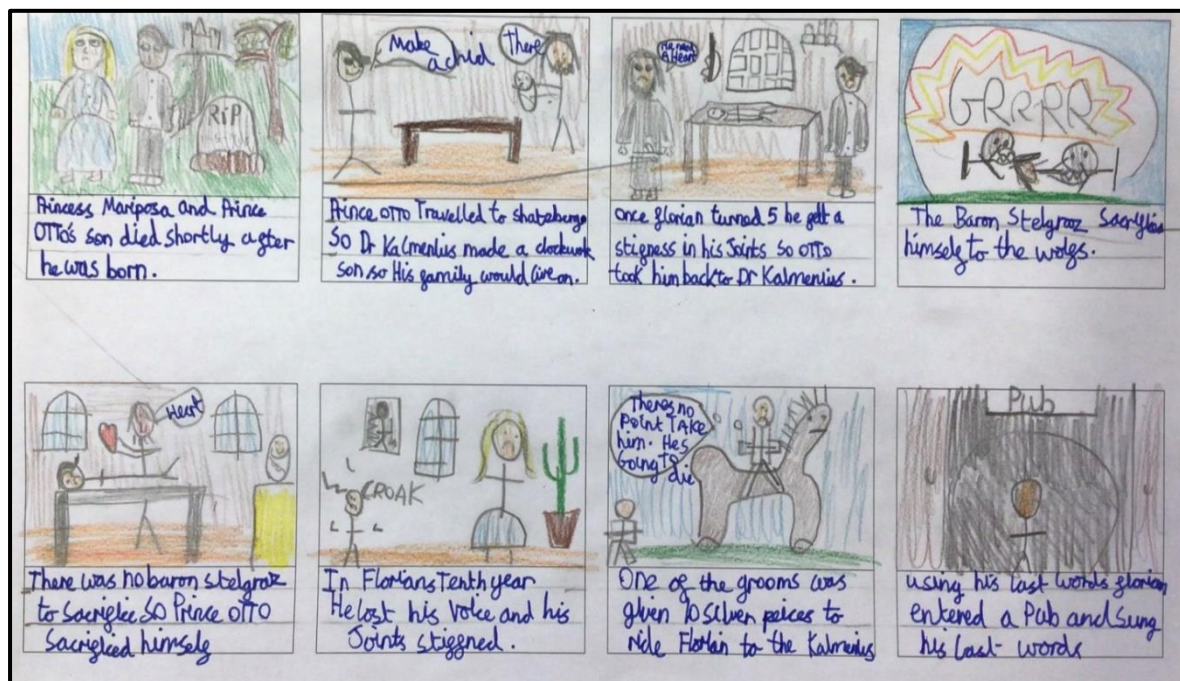 RIP
Princess Mariposa and Prince
OTTO's son died shortly after
he was born.
Make
a chid
There
Prince OTTO Travelled to shatzberge
So Dr Kalmenius made a clockwok
son so His family would live on.
He needs
A Heart
Once florian turned 5 he felt a
stifness in his Joints So OTTO
took him back to Dr Kalmenius.
GRRrRR
The Baron Stelgraz Sacryfies
himself to the wolfs.
Heart
There was no baron stelgraz
to Sacrifice SO Prince OTTO
Sacrificed himself
CROAK
In Florians Tenth year
He lost his voice and his
Joints stiffned.
Theres no
Point TAKE
him. Hes
Going To
die
One of the grooms was
given 10 silver peices to
ride Florian to the Kalmenius
Pub
using his last words florian
entered a Pub and Sung
his Last words